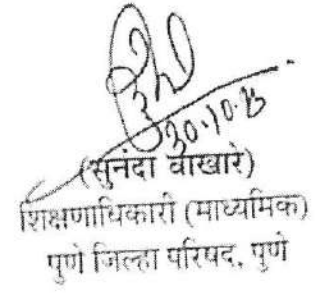 ३०.१०.२३
(सुनंदा वाखारे)
शिक्षणाधिकारी (माध्यमिक)
पुणे जिल्हा परिषद, पुणे